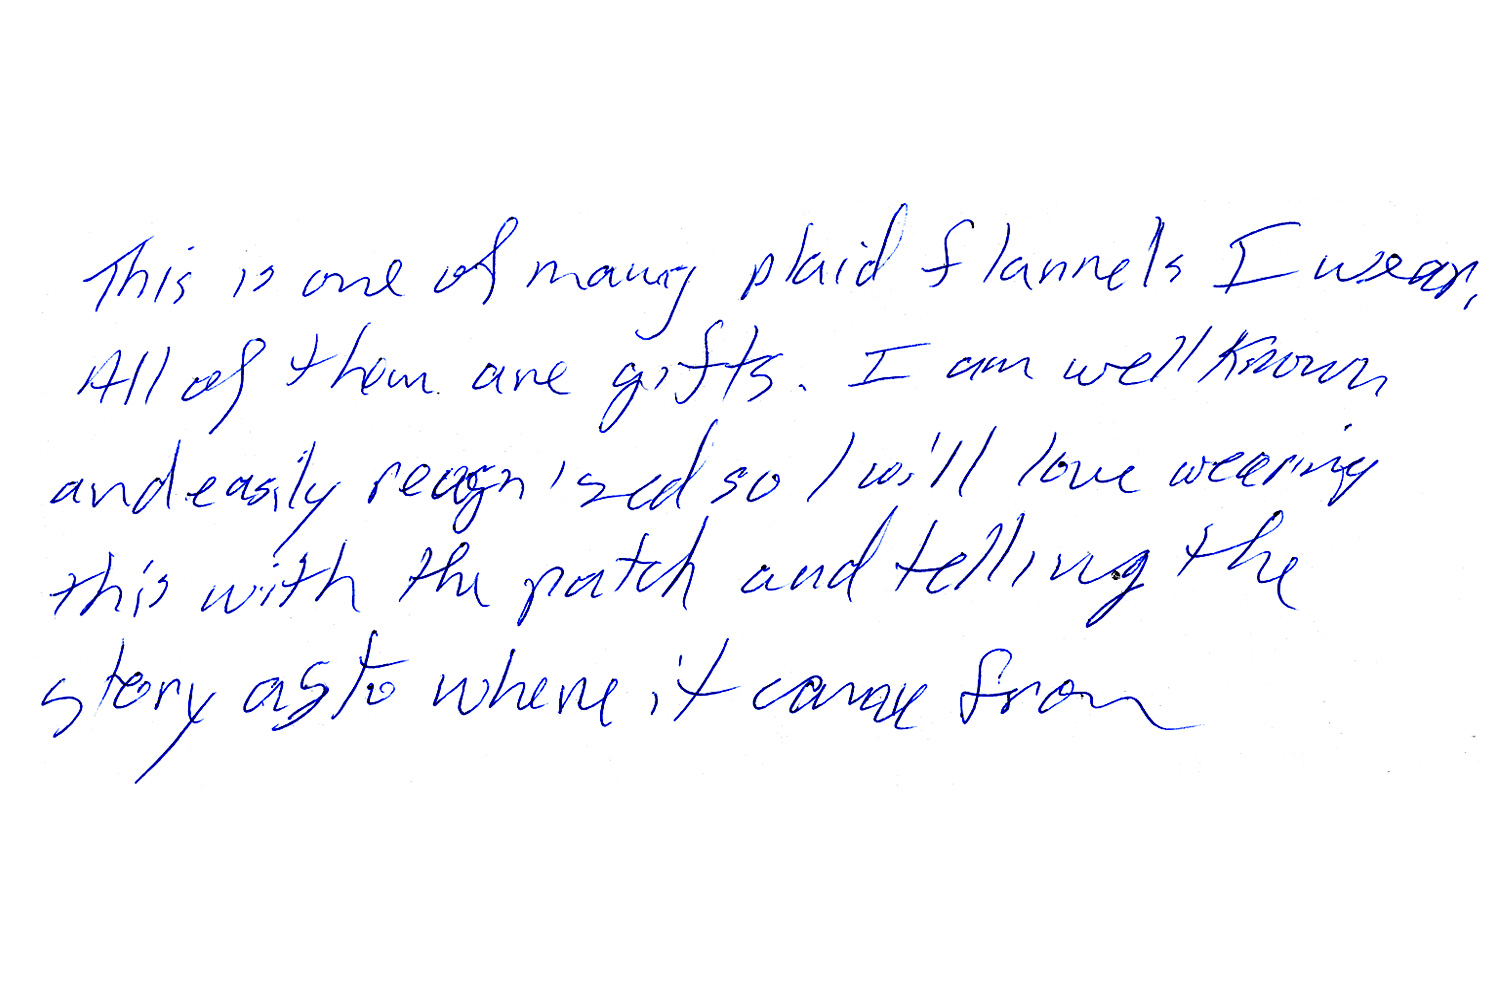 This is one of many plaid flannels I wear.
All of them are gifts. I am well known
and easily recognized so I will love wearing
this with the patch and telling the
story as to where it came from